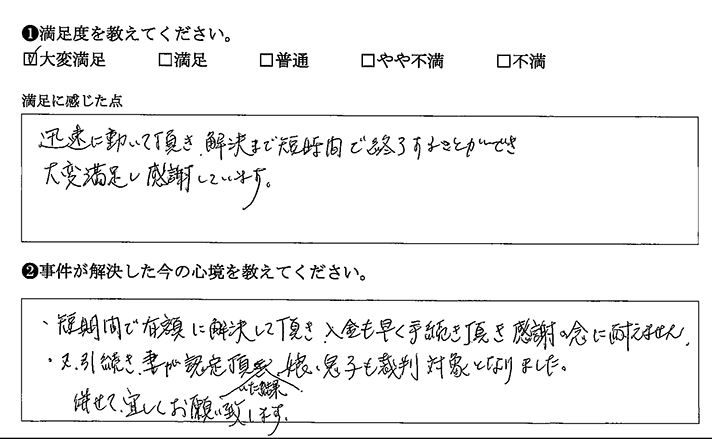 ❶満足度を教えてください。
☑大変満足 □満足 □普通 □やや不満 □不満
満足に感じた点
迅速に動いて頂き、解決まで短時間で終了することができ
大変満足し感謝しています。
❷事件が解決した今の心境を教えてください。
・短期間で有額に解決して頂き、入金も早く手続き頂き感謝の念に耐えません。
・又、引続き、妻が認定頂 、娘、息子も裁判対象となりました。
いた結果
併せて、宜しくお願い致します。